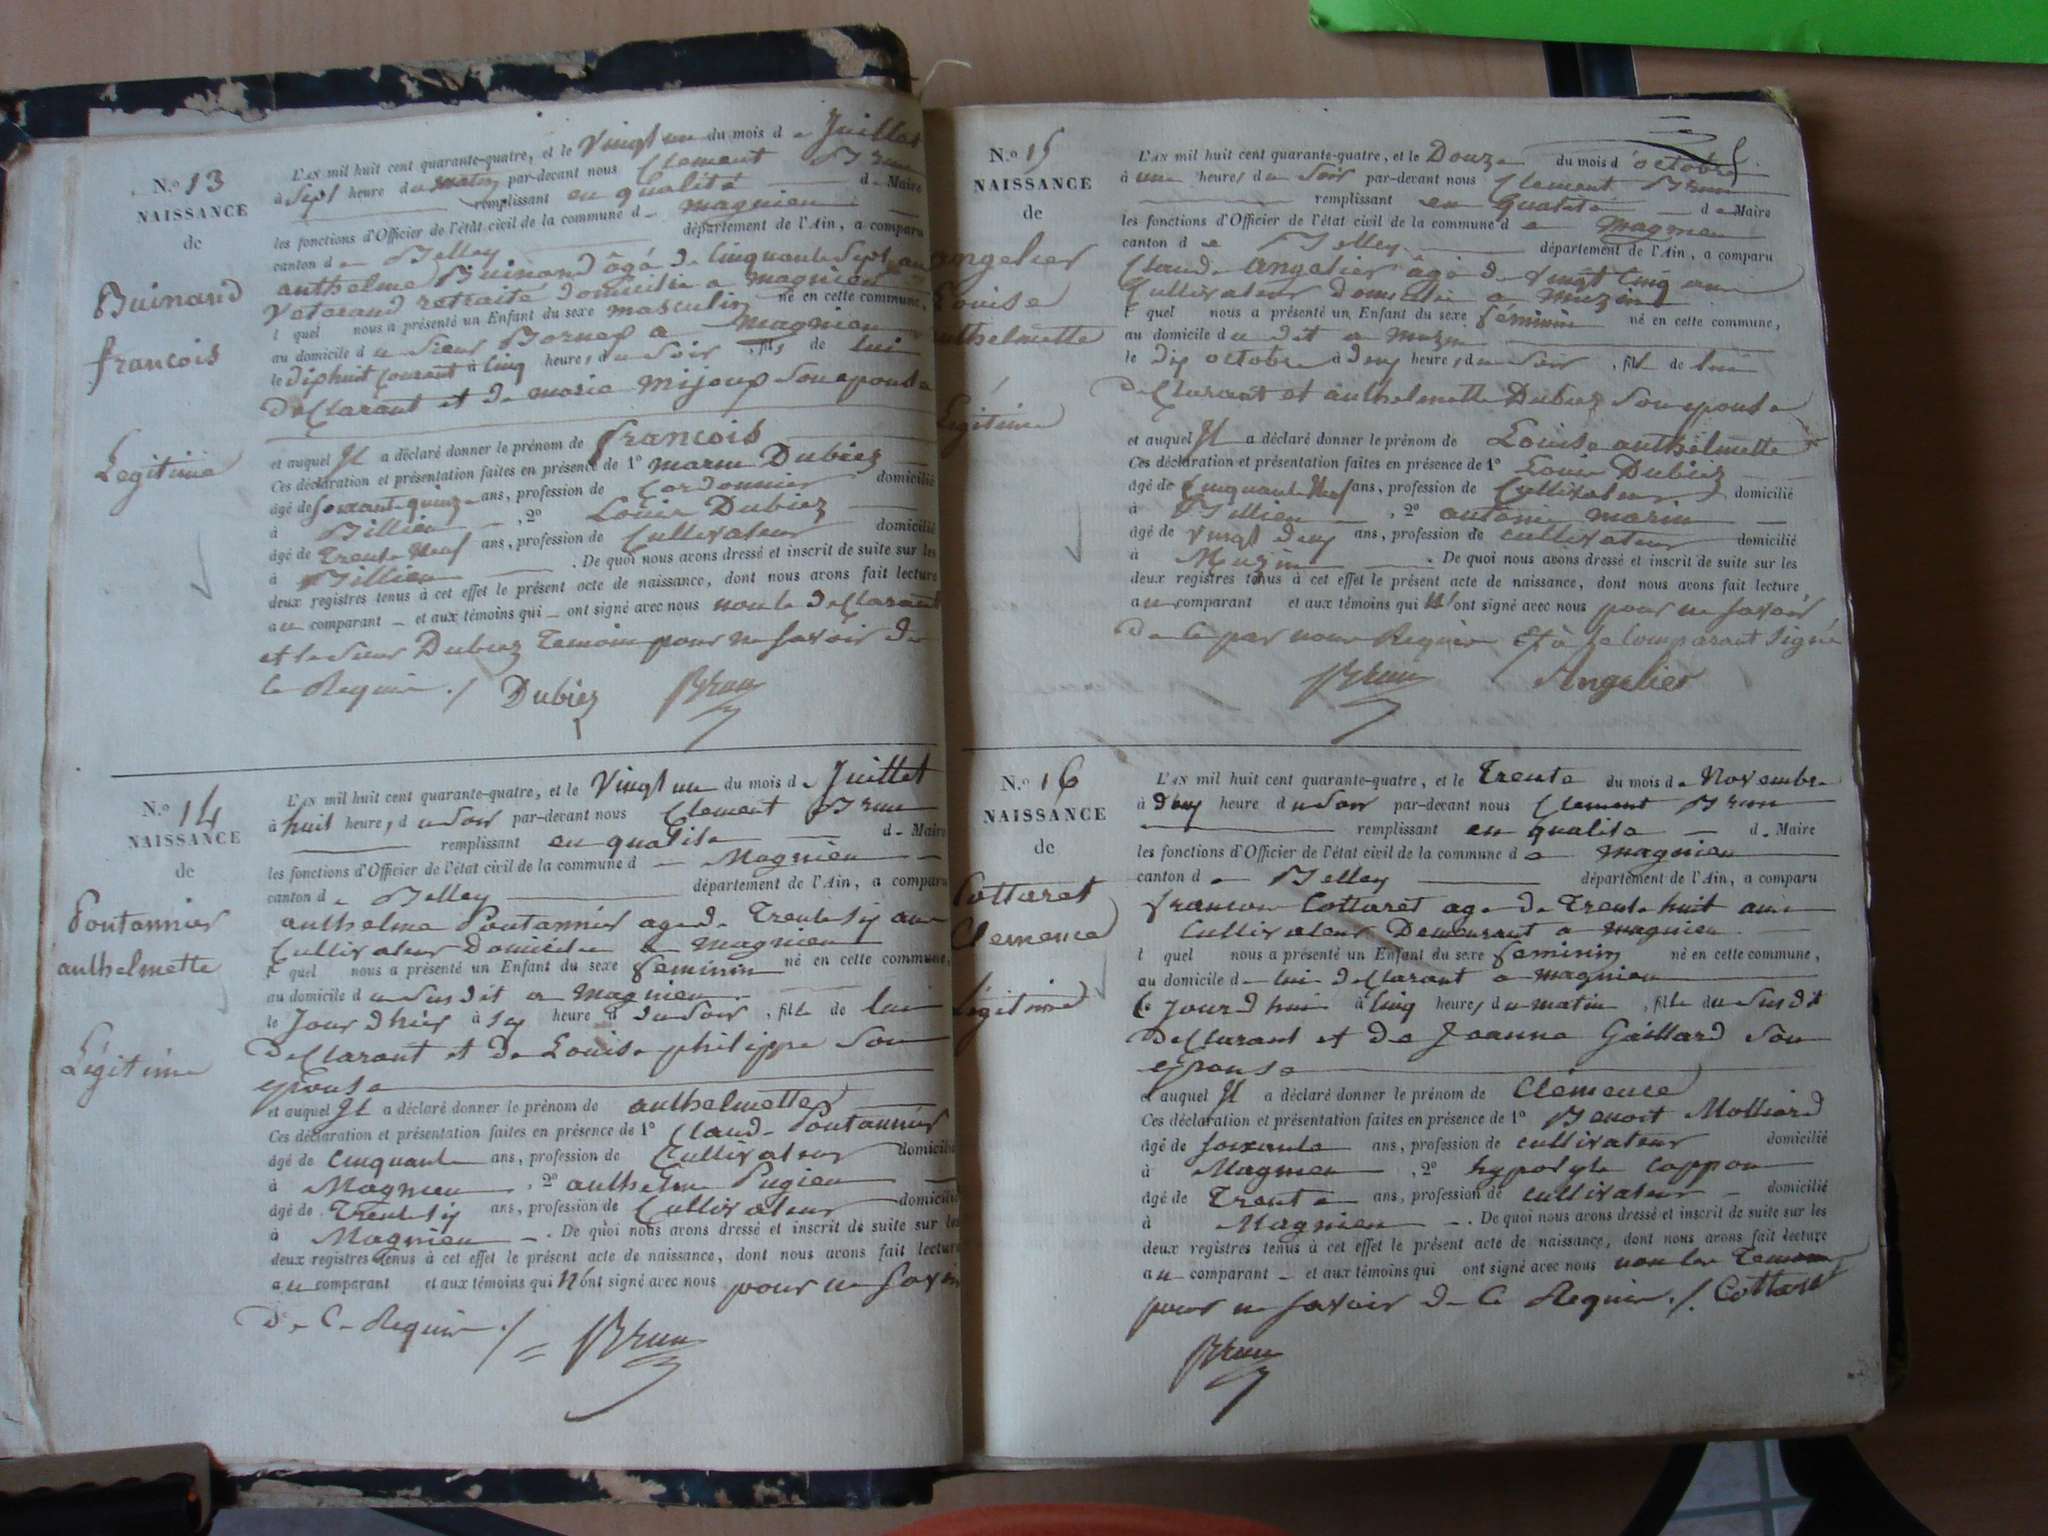 N.o 13
NAISSANCE
de
Buinand
francois
Legitime
L'AN mil huit cent quarante-quatre, et le Vingt un du mois de Juillet
à Sept heure du matin par-devant nous Clement Brun
remplissant en qualité de Maire
les fonctions d'Officier de l'état civil de la commune d magnieu
canton de Belley département de l'Ain, a comparu
anthelme Buinand âgé de Cinquante Sept ans
Veterand retraité domicilié a magnieu
l quel nous a présenté un Enfant du sexe masculin né en cette commune,
au domicile du Sieur Bornex a magnieu
le dixhuit Courant à Cinq heure, du Soir, fils de lui
Declarant et de marie mijoux Son epouse
et auquel Il a déclaré donner le prénom de francois
Ces déclaration et présentation faites en présence de 1o marin Dubiez
âgé de soixante quinze ans, profession de Cordonnier domicilié
à Billieu, 2o Louis Dubiez
âgé de Trente Neuf ans, profession de Cultivateur domicilié
à Billieu. De quoi nous avons dressé et inscrit de suite sur les
deux registres tenus à cet effet le présent acte de naissance, dont nous avons fait lecture
au comparant et aux témoins qui ont signé avec nous non le Declarant
et le Sieur Dubiez Temoin pour ne Savoir de
Ce Requis ./ Dubiez Brun
N.o 14
NAISSANCE
de
Pontannier
anthelmette
Légitime
L'AN mil huit cent quarante-quatre, et le Vingt un du mois de Juillet
à huit heure, du Soir par-devant nous Clement Brun
remplissant en qualite de Maire
les fonctions d'Officier de l'état civil de la commune d Magnieu
canton de Belley département de l'Ain, a comparu
anthelme Pontannier age de Trente six ans
Cultivateur Domicilie a Magnieu
l quel nous a présenté un Enfant du sexe Feminin né en cette commune,
au domicile du Susdit a Magnieu
le Jour dhier à six heure du Soir, fille de lui
Declarant et de Louise philippe Son
epouse
et auquel Il a déclaré donner le prénom de anthelmette
Ces déclaration et présentation faites en présence de 1o Claude Pontannier
âgé de Cinquante ans, profession de Cultivateur domicilié
à Magnieu, 2o anthelme Pugieu
âgé de Trente six ans, profession de Cultivateur domicilié
à Magnieu. De quoi nous avons dressé et inscrit de suite sur les
deux registres tenus à cet effet le présent acte de naissance, dont nous avons fait lecture
au comparant et aux témoins qui n'ont signé avec nous pour ne Savoir
De Ce Requis ./ Brun
N.o 15
NAISSANCE
de
angelier
Louise
anthelmette
Légitime
L'AN mil huit cent quarante-quatre, et le Douze du mois d'octobre
à une heure, du Soir par-devant nous Clement Brun
remplissant en qualité de Maire
les fonctions d'Officier de l'état civil de la commune de magnieu
canton de Belley département de l'Ain, a comparu
Claude angelier âgé de Vingt Cinq ans
Cultivateur Domicilié a Muzin
l quel nous a présenté un Enfant du sexe Féminin né en cette commune,
au domicile du dit a Muzin
le dix octobre à deux heure, du Soir, fille de lui
Declarant et anthelmette Dubiez Son epouse
et auquel Il a déclaré donner le prénom de Louise anthelmette
Ces déclaration et présentation faites en présence de 1o Louis Dubiez
âgé de Cinquante Neuf ans, profession de Cultivateur domicilié
à Billieu, 2o antoine marin
âgé de Vingt Deux ans, profession de cultivateur domicilié
à Muzin. De quoi nous avons dressé et inscrit de suite sur les
deux registres tenus à cet effet le présent acte de naissance, dont nous avons fait lecture
au comparant et aux témoins qui N'ont signé avec nous pour ne Savoir
De Ce par nous Requis Et à le Comparant Signé
Brun Angelier
N.o 16
NAISSANCE
de
Cottaret
Clemence
Légitime
L'AN mil huit cent quarante-quatre, et le Trente du mois de Novembre
à deux heure du Soir par-devant nous Clement Brun
remplissant en qualite d. Maire
les fonctions d'Officier de l'état civil de la commune de magnieu
canton de Belley département de l'Ain, a comparu
francois Cottaret age de Trente huit ans
Cultivateur Demeurant a magnieu
l quel nous a présenté un Enfant du sexe Feminin né en cette commune,
au domicile de lui declarant a magnieu
le Jourdhui à Cinq heure, du matin, fille du Susdit
Declarant et de Jeanne Gaillard Son
epouse
et auquel Il a déclaré donner le prénom de Clémence
Ces déclaration et présentation faites en présence de 1o Benoit Molliard
âgé de soixante ans, profession de cultivateur domicilié
à Magnieu, 2o hypolyte Cappon
âgé de Trente ans, profession de cultivateur domicilié
à Magnieu. De quoi nous avons dressé et inscrit de suite sur les
deux registres tenus à cet effet le présent acte de naissance, dont nous avons fait lecture
au comparant et aux témoins qui ont signé avec nous non les Temoins
pour ne Savoir de Ce Requis ./. Cottaret
Brun